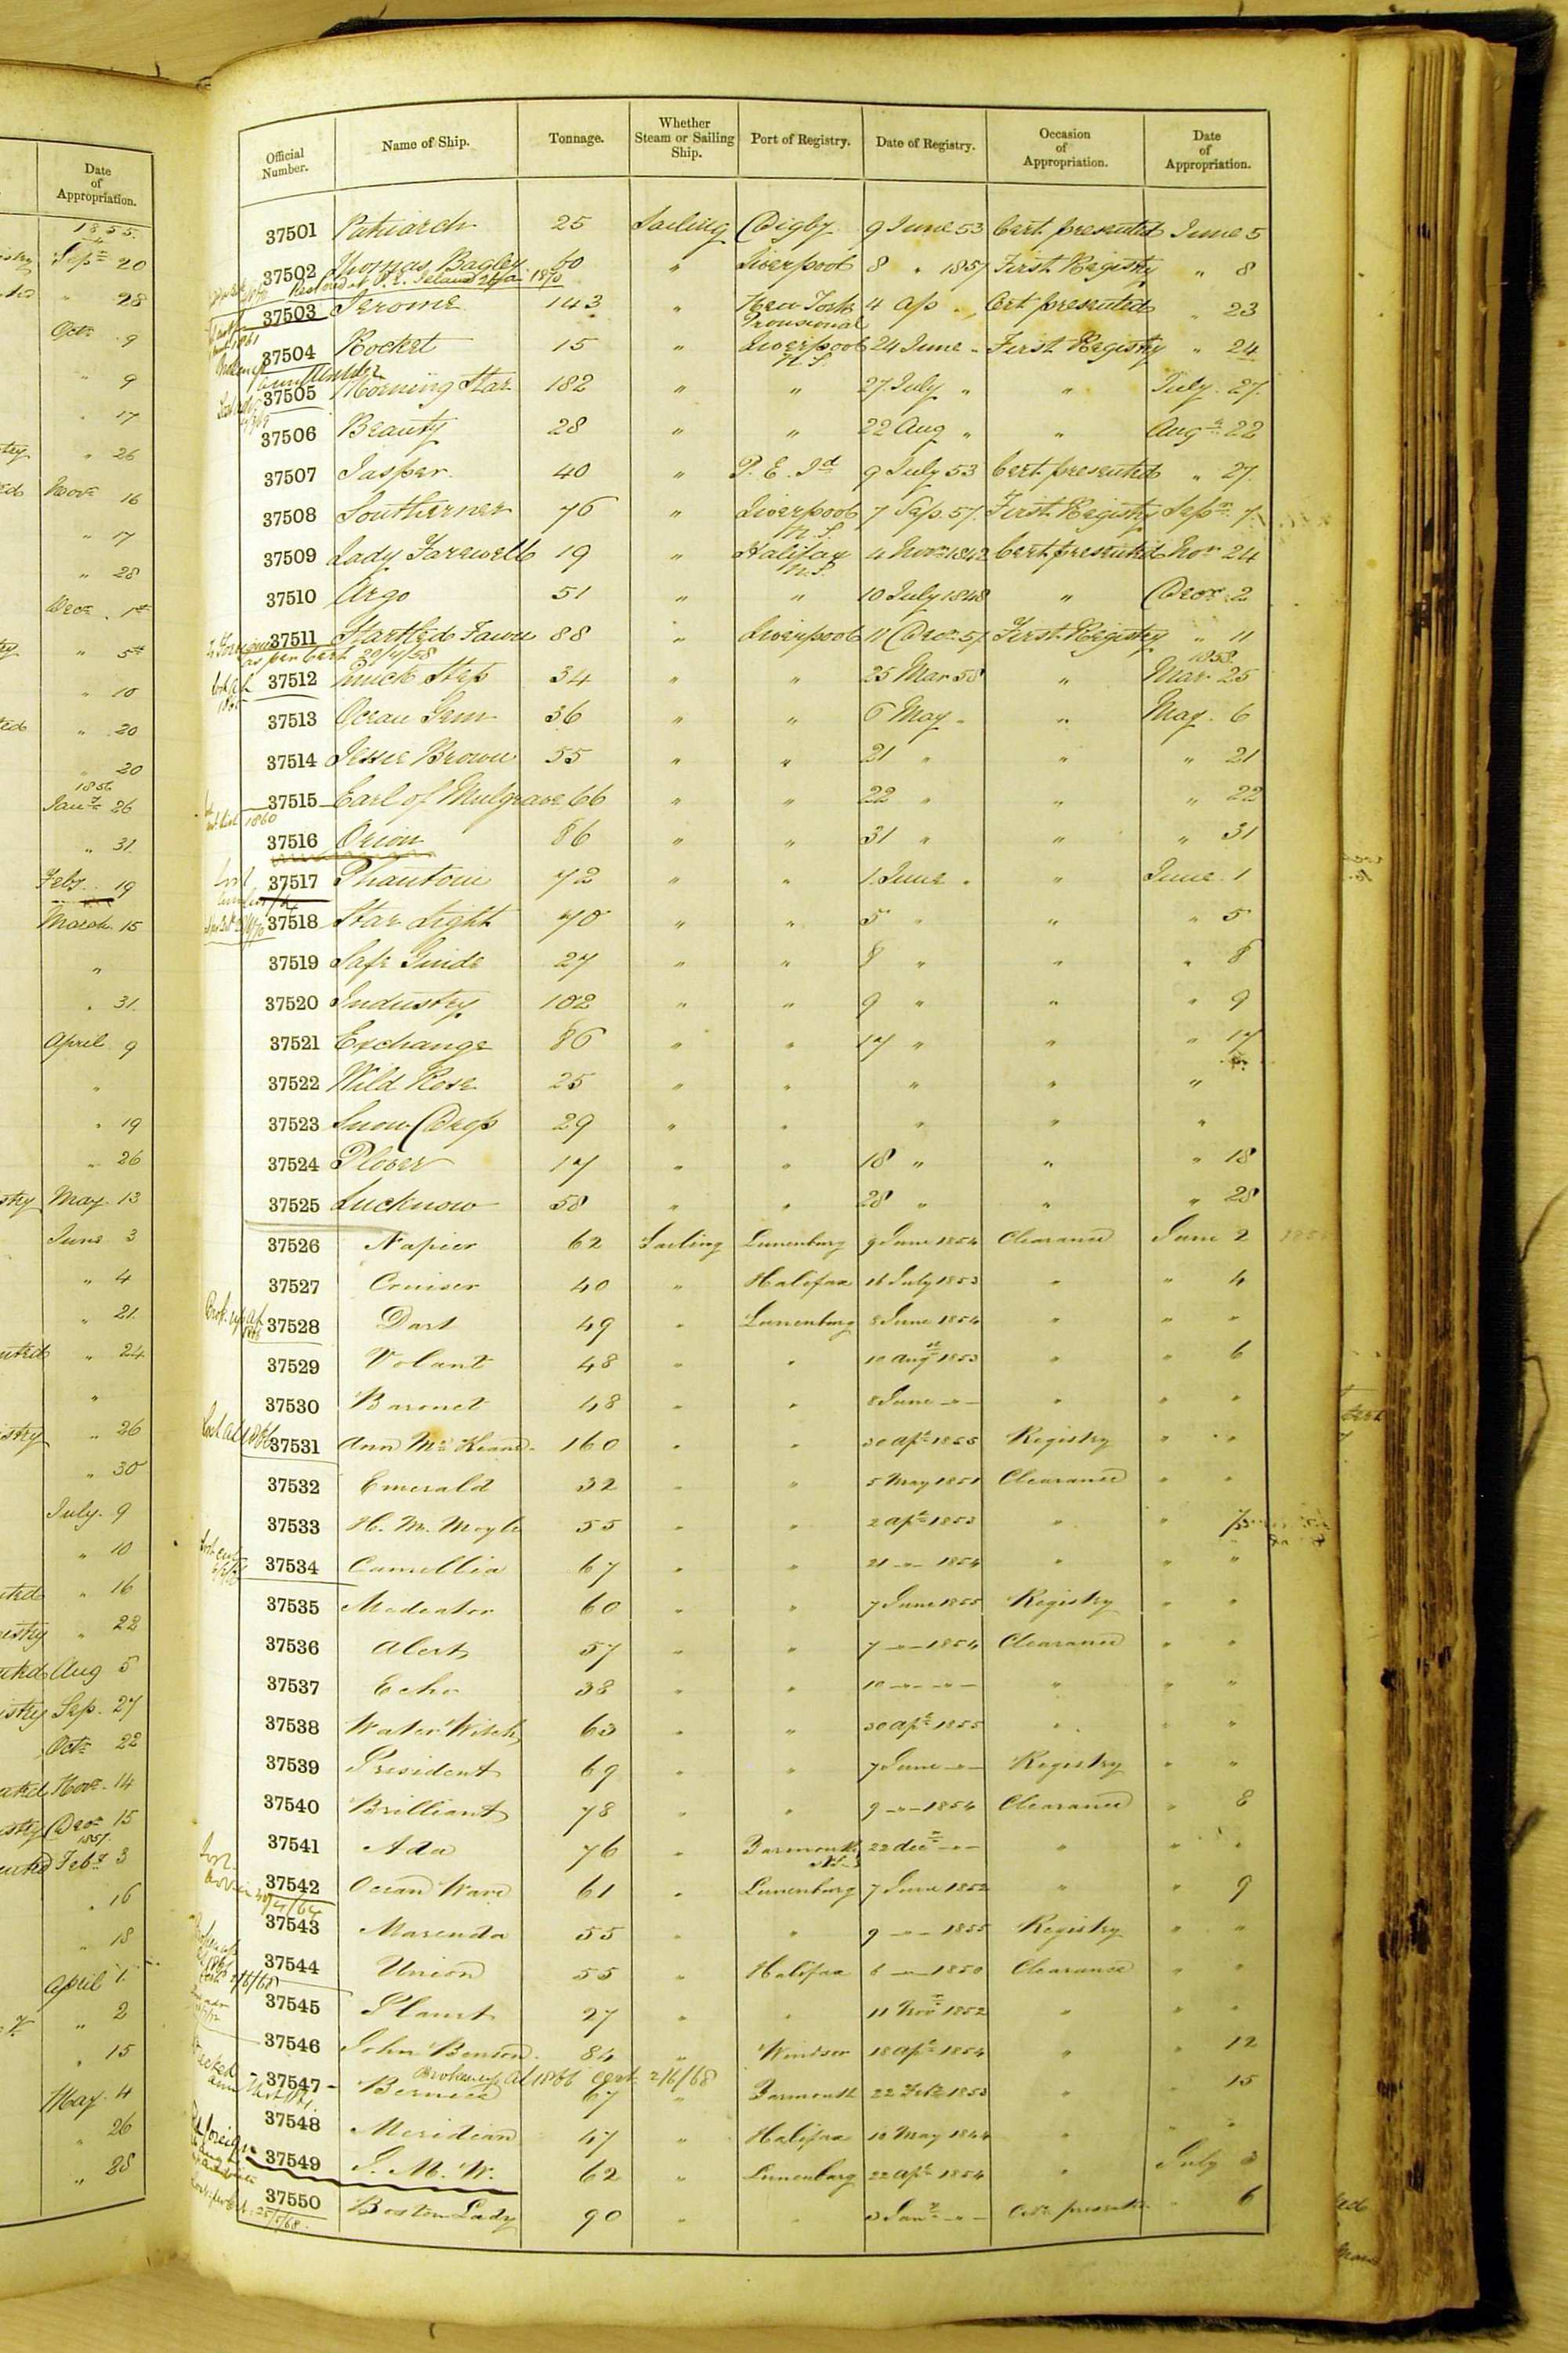 Date of Appropriation.
1855.
Sepr 20
" 28
Octr 9
" 9
" 17
" 26
Novr 16
" 17
" 28
Decr 1st
" 5th
" 10
" 20
" 20
1856
Jany 26
" 31
Feby. 19
March 15
"
" 31.
April 9
"
" 19
" 26
May 13
June 3
" 4
" 21
" 24
"
" 26
" 30
July. 9
" 10
" 16
" 22
Aug 5
Sep. 27
Octr 22
Novr 14
Decr 15
1857.
Feby 3
" 16
" 18
April 1
" 2
" 15
May. 4
" 26
" 28
Official Number. Name of Ship. Tonnage. Whether Steam or Sailing Ship. Port of Registry. Date of Registry. Occasion of Appropriation. Date of Appropriation.
37501 Patriarch 25 Sailing Digby 9 June 53 Cert. presented June 5
37502 Thomas Bagley 60 " Liverpool 8 " 1857 First Registry " 8
37503 Jerome 143 " New York Provisional 4 Ap " Cert presented " 23
37504 Rocket 15 " Liverpool N.S. 24 June " First Registry " 24
37505 Morning Star 182 " " 27. July " " July. 27.
37506 Beauty 28 " " 22 Aug " " Augt 22
37507 Jasper 40 " P. E. Id 9 July 53 Cert. presented " 27.
37508 Southerner 76 " Liverpool N.S. 7 Sep. 57. First Registry Sepr 7.
37509 Lady Farewell 19 " Halifax N.S. 4 Novr 1842 Cert presented Nov 24
37510 Argo 51 " " 10 July 1848 " Decr 2
37511 Startled Fawn 88 " Liverpool 11 Decr 57 First Registry " 11
as per Cert 20/4/58
1858.
37512 Quick Step 34 " " 25 Mar 58 " Mar 25
37513 Ocean Gem 36 " " 6 May " " May. 6
37514 Jessie Brown 55 " " 21 " " " 21
37515 Earl of Mulgrave 66 " " 22 " " " 22
1860
37516 Orion 86 " " 31 " " " 31
37517 Phantom 72 " " 1. June " " June 1
37518 Star Light 70 " " 5 " " " 5
37519 Safe Guide 27 " " 8 " " " 8
37520 Industry 102 " " 9 " " " 9
37521 Exchange 86 " " 17 " " " 17
37522 Wild Rose 25 " " " " "
37523 Snow Drop 29 " " " " "
37524 Plover 17 " " 18 " " " 18
37525 Lucknow 58 " " 28 " " " 28
37526 Napier 62 Sailing Lunenburg 9 June 1854 Clearance June 2
37527 Cruiser 40 " Halifax 16 July 1853 " " 4
37528 Dart 49 " Lunenburg 8 June 1854 " " "
37529 Volant 48 " " 10 Augt 1853 " " 6
37530 Baronet 48 " " 8 June " " " "
37531 Ann Mc Keand 160 " " 30 Apl 1855 Registry " "
37532 Emerald 32 " " 5 May 1851 Clearance " "
37533 H. M. Moyle 55 " " 2 Apl 1853 " " 7
37534 Camellia 67 " " 21 " 1854 " " "
37535 Mediator 60 " " 7 June 1855 Registry " "
37536 Alert 57 " " 7 " 1854 Clearance " "
37537 Echo 38 " " 10 " " " " "
37538 Water Witch 63 " " 30 Apl 1855 " " "
37539 President 69 " " 7 June " Registry " "
37540 Brilliant 78 " " 9 " 1854 Clearance " 8
37541 Ada 76 " Yarmouth N.S 22 Decr " " " "
37542 Ocean Wave 61 " Lunenburg 7 June 1852 " " 9
37543 Marenda 55 " " 9 " 1855 Registry " "
37544 Union 55 " Halifax 6 " 1850 Clearance " "
37545 Planet 27 " " 11 Novr 1852 " " "
37546 John Benson 84 " Windsor 18 Apl 1854 " " 12
Broken up Al 1866 Cert. 2/6/68
37547 Bernice 67 " Yarmouth 22 Feby 1853 " " 15
37548 Meridian 47 " Halifax 18 May 1844 " " "
37549 J. M. W. 62 " Lunenburg 22 Apl 1854 " July 3
37550 Boston Lady 90 " " 3 Jany " Cert. presented " 6
25/5/68.